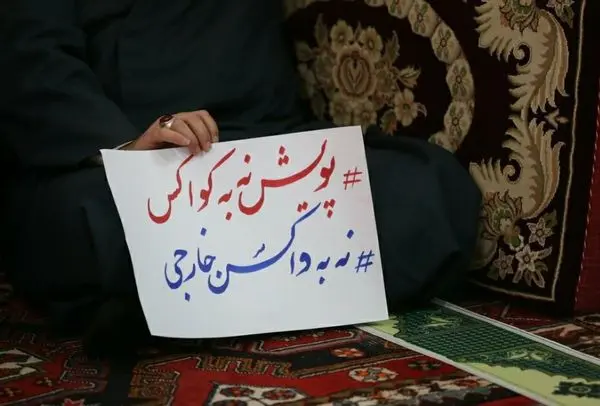 #پویش نه به کواکس
#نه به واکسن خارجی